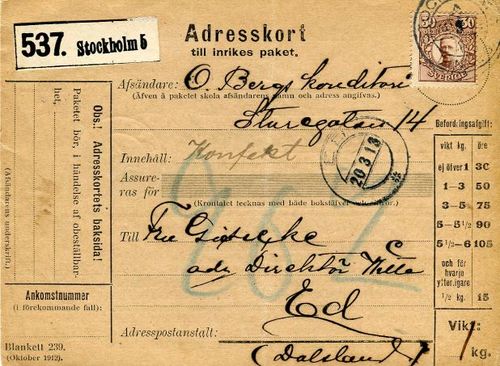 537. Stockholm 5
Adresskort
till inrikes paket.
30 30
SVERIGE
Afsändare: O. Bergs konditori
(Äfven å paketet skola afsändarens namn och adress angifvas.)
Sturegatan 14
Innehåll: Konfekt
Assure-
ras för
(Krontalet tecknas med både bokstäfver
20 3 13
Till Fru
adr Direktör
Ed
Adresspostanstalt:
(Dalsland)
Obs.! Adresskortets baksida!
Paketet bör, i händelse af obeställbar-
het,
(Afsändarens underskrift.)
Ankomstnummer
(i förekommande fall):
Blankett 239.
(Oktober 1912).
Befordringsafgift:
vikt kg. öre
ej öfver 1 30
1-3 50
3-5 75
5-5½ 90
5½-6 105
och för
hvarje
ytterligare
½ kg. 15
Vikt:
1 kg.